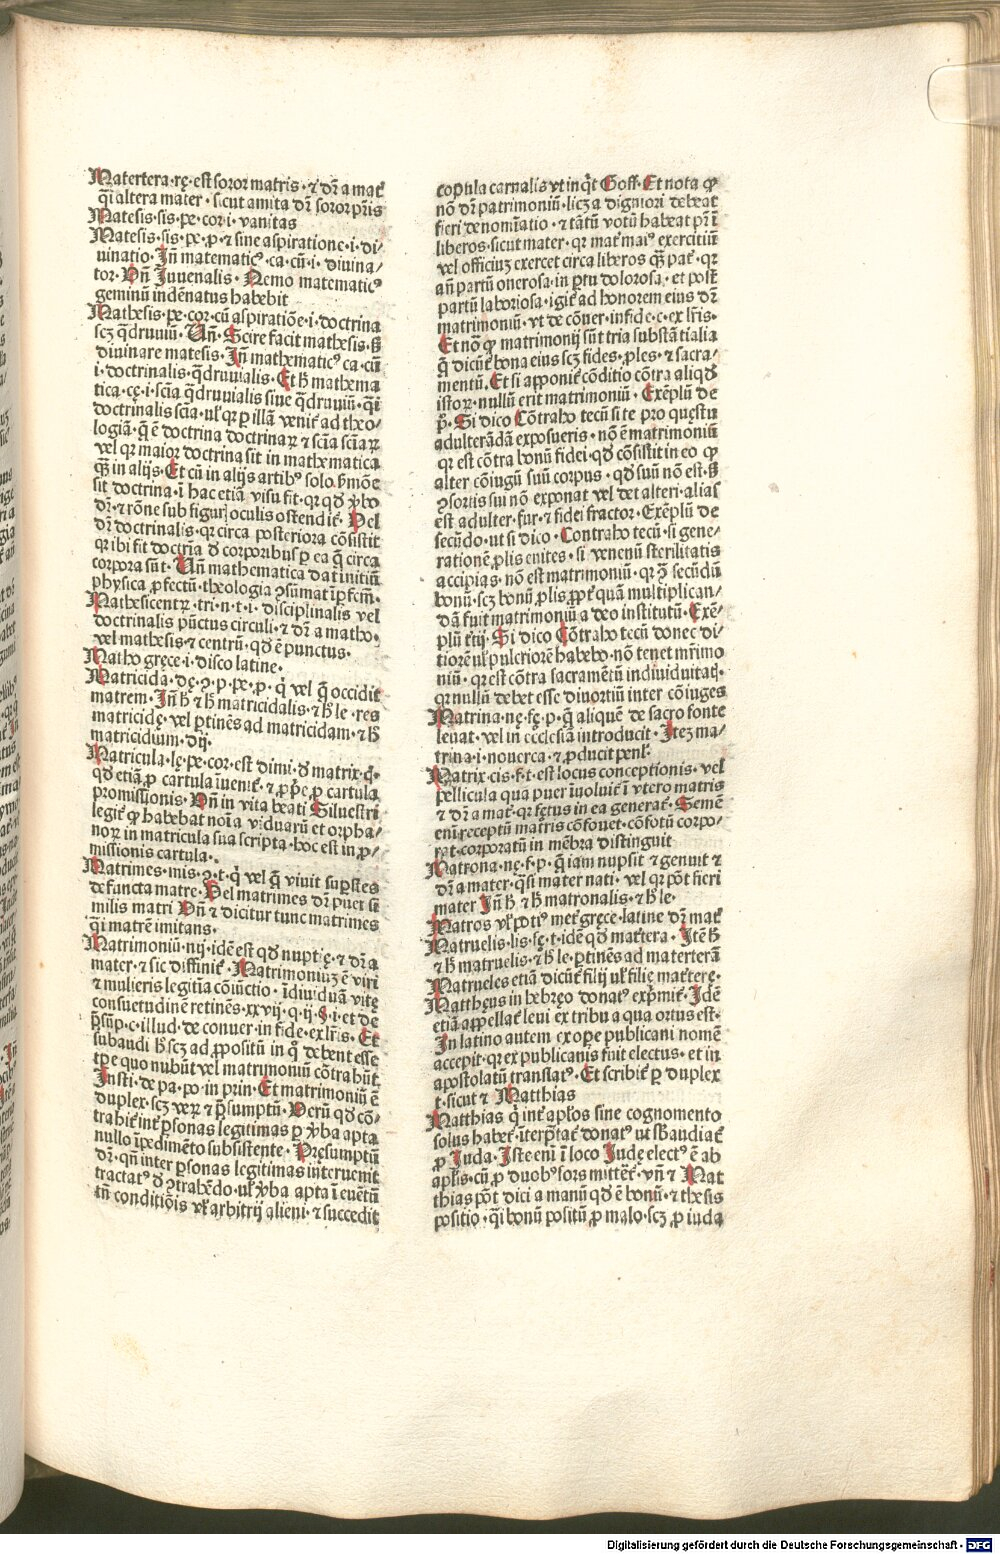 Matertera·rę·est soror matris·⁊ dr̄ a mat̄
q̄si altera mater·sicut amita dr̄ soror pr̄is
Matesis·sis·pe·cor·i·vanitas
Matesis·sis·pe·ꝓ·⁊ sine aspiratione·i·di/
uinatio·Jn̄ matematicꝰ·ca·cū·i·diuina/
tor·Vn̄ Juuenalis·Nemo matematicꝰ
geminū indēnatus habebit
Mathesis·pe·cor·cū aspiratiōe·i·doctrina
scꝫ q̄druuiū·Vn̄·Scire facit mathesis·ß
diuinare matesis·Jn̄ mathematicꝰ ca·cū
i·doctrinalis·q̄druuialis·Et h̄ mathema
tica·cę·i·scīa q̄druuialis siue q̄druuiū·q̄si
doctrinalis scīa·vl̄ qꝛ ꝑ illā venit̄ ad theo/
logiā·q̄ ē doctrina doctrinaꝝ ⁊ scīa scīaꝝ
vel qꝛ maior doctrina sit in mathematica
q̄ꝫ in alijs·Et cū in alijs artibꝰ solo ẜmōe
sit doctrina·ī hac etiā visu fit·qꝛ qđ v̄bo
dr̄·⁊ rōne sub figuris oculis ostendit̄·Vel
dr̄ doctrinalis·qꝛ circa posteriora cōsistit
qꝛ ibi fit doctrīa đ corporibus ꝑ ea q̄ circa
corpora sūt·Vn̄ mathematica dat initiū
physica ꝓfectū·theologia ꝯsūmat īpfcm̄·
Mathesicentꝝ·tri·n·t·i·disciplinalis vel
doctrinalis pūctus circuli·⁊ dr̄ a matho·
vel mathesis·⁊ centrū·qđ ē punctus·
Matho gręce·i·disco latine·
Matricida·dę·ꝯ·p·pe·ꝓ·q̇ vel q̄ occidit
matrem·Jn̄ h̄ ⁊ h̄ matricidalis·⁊ h̄ le·res
matricidę·vel ꝑtinēs ad matricidam·⁊ h̄
matricidium·dij·
Matricula·lę·pe·cor·est dimi·đ matrix·q̇·
qđ etiā ꝓ cartula īuenit̄·⁊ ꝓpe ꝓ cartula
promissionis·Vn̄ in vita beati Siluestri
legit̄ ꝙ habebat noīa viduarū et orpha/
noꝝ in matricula sua scripta·hoc est in ꝓ/
missionis cartula·.
Matrimes·mis·ꝯ·t·q̇ vel q̄ viuit suꝑstes
defuncta matre·Vel matrimes dr̄ puer si
milis matri Vn̄ ⁊ dicitur tunc matrimes
q̄si matrē imitans·
Matrimoniū·nij·idē est qđ nuptię·⁊ dr̄ a
mater·⁊ sic diffinit̄·Matrimoniuꝫ ē viri
⁊ mulieris legitīa cōiūctio·īdiuiduā vitę
consuetudinē retinēs·xxvij·q·ij·§·i·et de
p̄sūp·c·illud·de conuer·in fide·ex lr̄is·Et
subaudi h̄ scꝫ ad ꝓpositū in q̇ debent esse
tꝑe quo nubūt vel matrymoniū cōtrahūt·
Jnsti·de pa·po·in prin·Et matrimoniū ē
duplex·scꝫ veꝝ ⁊ p̄sumptū·Verū qđ cō/
trahit̄ int̄ ꝑsonas legitimas ꝑ v̄ba apta
nullo īpedimēto subsistente·Pręsumptū
dr̄·qn̄ inter ꝑsonas legitimas interuenit
tractatꝰ đ ꝯtrahēdo·vl̄ v̄ba apta ī euētū
tn̄ conditiōis vl̄ arbitrij alieni·⁊ succedit
copula carnalis vt inq̇t Goff·Et nota ꝙ
nō dr̄ patrimoniū·licꝫ a digniori debeat
fieri denoīatio·⁊ tātū votū habeat pr̄ ī
liberos·sicut mater·qꝛ mat̄ maiꝰ exercitiū
vel officiuꝫ exercet circa liberos q̄ꝫ pat̄·qꝛ
an̄ partū onerosa·in ꝑtu dolorosa·et post̄
partū laboriosa·igit̄ ad honorem eius dr̄
matrimoniū·vt de cōuer·infide·c·ex lr̄is·
Et nō ꝙ matrimonij sūt tria substātialia
q̄ dicūt̄ bona eius scꝫ fides·ꝓles·⁊ sacra/
mentū·Et si apponit̄ cōditio cōtra aliqđ
istoꝝ·nullū erit matrimoniū·Exēplū de
p̄·Si dico Cōtraho tecū si te pro quęstu
adulterādā exposueris·nō ē matrimoniū
qꝛ est cōtra bonū fidei·qđ cōsistit in eo ꝙ
alter cōiugū suū corpus·qđ suū nō est·ß
ꝯsortis sui nō exponat vel det alteri·alias
est adulter·fur·⁊ fidei fractor·Exēplū de
secūdo·ut si dico·Contraho tecū·si gene/
rationē ꝓlis euites·si venenū sterilitatis
accipias·nō est matrimoniū·qꝛ ꝯ̄ secūdū
bonū·scꝫ bonū ꝓlis ꝓpt̄ quā multiplican/
dā fuit matrimoniū a deo institutū·Exē/
plū t̄tij·Si dico Cōtraho tecū donec di/
tiorē vl̄ pulcriorē habebo·nō tenet mr̄imo
niū·qꝛ est cōtra sacramētū indiuiduitaꝫ·
qꝛ nullū debet esse diuortiū inter cōiuges
Matrina·nę·fę·p·q̄ aliquē de sacro fonte
leuat·vel in ecclesiā introducit·Jteꝫ ma/
trina·i·nouerca·⁊ ꝓducit penl̄·
Matrix·cis·f·t·est locus conceptionis·vel
pellicula qua puer īuoluit̄ ī vtero matris
⁊ dr̄ a mat̄·qꝛ fętus in ea generat̄·Semē
enī receptū matris cōfouet·cōfotū corpo/
rat·corporatū in mēbra distinguit
Matrona·nę·f·p·q̄ iam nupsit ⁊ genuit ⁊
dr̄ a mater·q̄si mater nati·vel qꝛ pōt fieri
mater Jn̄ h̄ ⁊ h̄ matronalis·⁊ h̄ le·
Matros vl̄ potiꝰ met̄ gręce·latine dr̄ mat̄
Matruelis·lis·fę·t·idē qđ mat̄tera·Jtē h̄
⁊ h̄ matruelis·⁊ h̄ le·ꝑtinēs ad materterā
Matrueles etiā dicūt̄ filij vl̄ filię mat̄terę·
Matthęus in hebręo donatꝰ exp̄mit̄·Jdē
etiā appellat̄ leui ex tribu a qua ortus est·
Jn latino autem ex oꝑe publicani nomē
accepit·qꝛ ex publicanis fuit electus·et in
apostolatū translatꝰ·Et scribit̄ ꝑ duplex
t·sicut ⁊ Matthias
Matthias q̇ int̄ apl̄os sine cognomento
solus habet̄·īterp̄tat̄ donatꝰ ut sb̄audiat̄
ꝓ Juda·Jste enī ī loco Judę electꝰ ē ab
apl̄is·cū ꝓ duobꝰ sors mittēt̄·vn̄ ⁊ Mat
thias pōt dici a manū qđ ē bonū·⁊ thesis
positio·q̄si bonū positū ꝓ malo·scꝫ ꝓ iuda
Digitalisierung gefördert durch die Deutsche Forschungsgemeinschaft - DFG